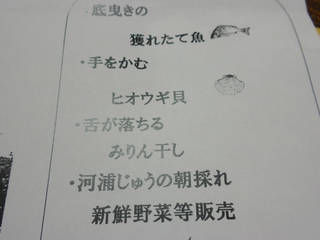 ・底曳きの
獲れたて魚
・手をかむ
ヒオウギ貝
・舌が落ちる
みりん干し
・河浦じゅうの朝採れ
新鮮野菜等販売